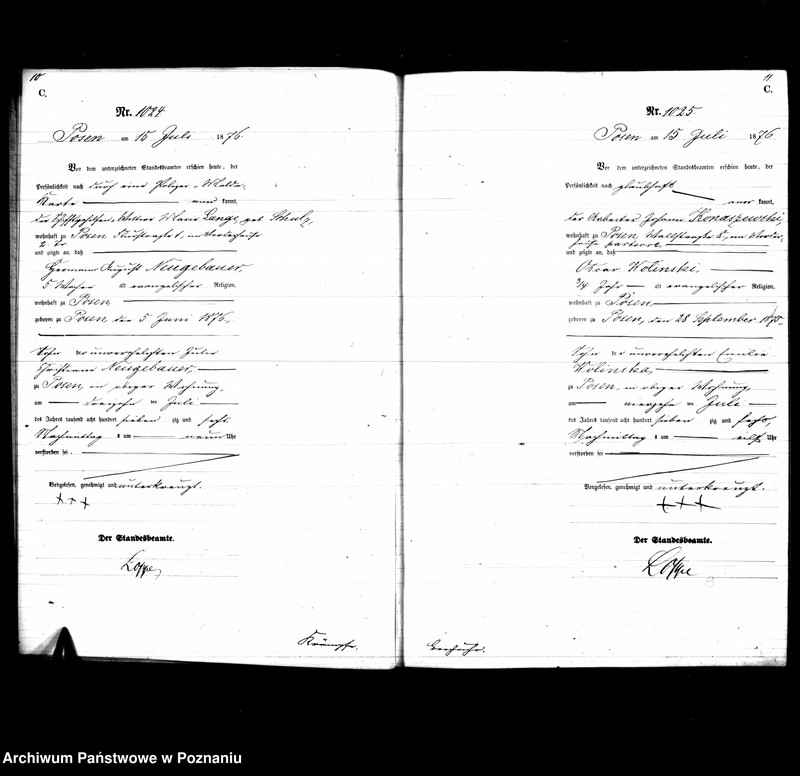 10
C.
Nr. 1024
Posen am 15 Juli 1876.
Vor dem unterzeichneten Standesbeamten erschien heute, der
Persönlichkeit nach durch eine Polizei-Melde-
Karte kannt,
Marie Lange, geb. Schulz,
wohnhaft zu Posen
2. Tr
und zeigte an, daß
Hermann August Neugebauer,
5 Wochen alt evangelischer Religion,
wohnhaft zu Posen
geboren zu Posen, den 5 Juni 1876,
Sohn der unverehelichten Julie
Christiane Neugebauer,
zu Posen, in obiger Wohnung,
am dreizehn ten Juli
des Jahres tausend acht hundert sieben zig und sechs
Nachmittag s um neun Uhr
verstorben sei.
Vorgelesen, genehmigt und unterkreuzt.
+++
Der Standesbeamte.
Krämpfe.
11
C.
Nr. 1025.
Posen am 15 Juli 1876
Vor dem unterzeichneten Standesbeamten erschien heute, der
Persönlichkeit nach glaubhaft
aner kannt,
der Arbeiter Johann Konaszewski,
wohnhaft zu Posen, Wallstraße 8, im Vorder-
hause parterre,
und zeigte an, daß
Oscar Wolinski,
3/4 Jahr alt evangelischer Religion,
wohnhaft zu Posen
geboren zu Posen, den 28 September 1875,
Sohn der unverehelichten Emilie
Wolinska,
zu Posen, in obiger Wohnung,
am vierzehn ten Juli
des Jahres tausend acht hundert sieben zig und sechs,
Nachmittag s um elf Uhr
verstorben sei
Vorgelesen, genehmigt und unterkreuzt.
+++
Der Standesbeamte.
Archiwum Państwowe w Poznaniu